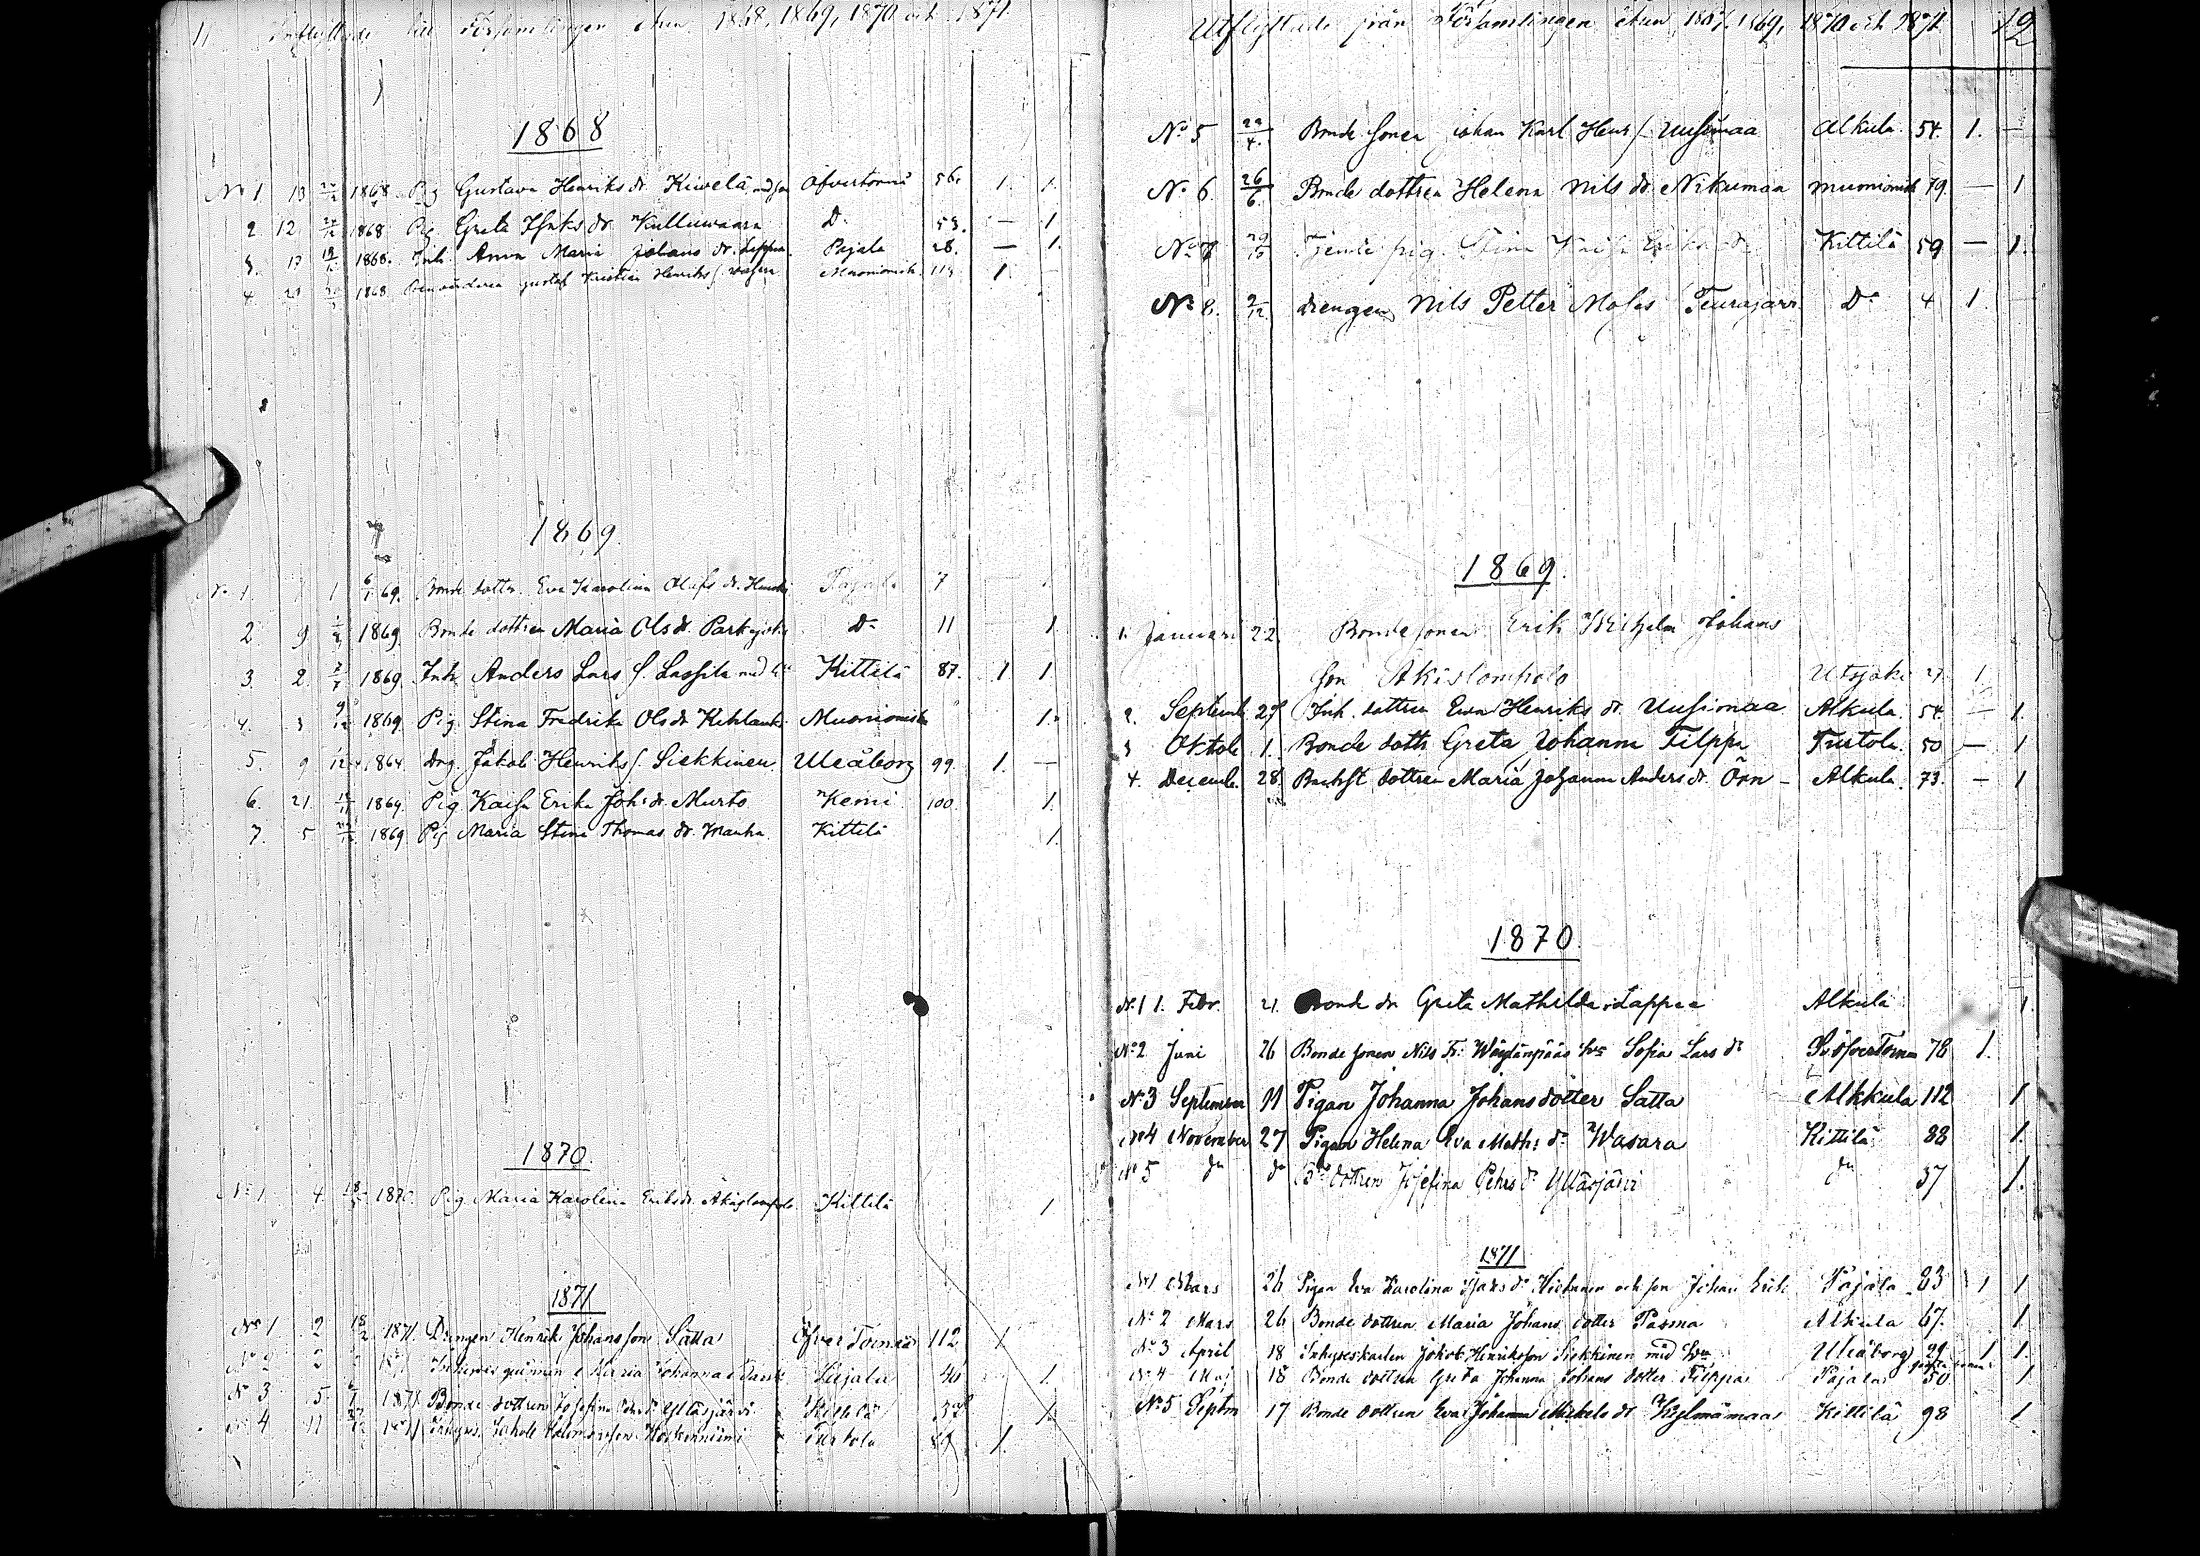 11 Inflyttade till Församlingen åren 1868, 1869, 1870 och 1871
1868
No 1 13 1868 Pig Gustava Henriks dr Kiwelä med son Öfvertorneå 56. 1. 1.
2 12 1868 Pig Greta Isaks dr Kulluwaara Do 53. — 1
3. 17 1868. Inh. Anna Maria Johans dr Lappea Pajala 28. — 1.
4. 20 1868 Gustaf Kristian Henriks s. Muonionisk. 113 1
1869.
No 1 1 6/1 69. Bonde dottr. Eva Karolina Olofs dr. Pajala 7
2. 9 1869 Bonde dottren Maria Ols dr. Parkajoki Do 11 1
3. 2 2/7 1869 Inh. Anders Lars s. Lassila med Kittilä 87. 1. 1
4. 3 9/12 1869. Pig. Stina Fredrika Ols dr Kihlanki Muonioniska 1.
5. 9 Drg. Jakob Henriks s. Siekkinen Uleåborg 99. 1. —
6. 21. 1869. Pig Kaisa Erika Joh: dr. Murto Kemi 100. 1.
7. 5 1869 Pig Maria Stina Thomas dr. Kittilä 1.
1870.
No 1. 4. 18 1870. Pig. Maria Karolina Eriks dr. Äkäslompolo Kittilä 1
1871
No 1 2 18/2 1871. Drängen Henrik Johansson Satta Öfver Torneå 112 1
No 2 Maria Johanna 46 1.
No 3 5 1871 Bonde dottren Josefina Pehrs dr Ylläsjärvi Kittilä 37 1.
No 4 11 1871 Turtola 1.
Utflyttade från Församlingen åren 1869, 1870 och 1871 12
No 5 22/4. Bonde sonen Johan Karl Henr s. Uusimaa Alkula. 54. 1. —
No 6. 26/6 Bonde dottren Helena Nils dr. Nikumaa Muonionisk 79. — 1
No 7 Tjenste pig. Stina Kaisa Eriks dr Kittilä 59 — 1.
No 8. 2/12 drengen Nils Petter Moses Teurajärvi Do 4 1
1869.
1. Januari 22. Bondesonen Erik Wilhelm Johans
son Äkäslompolo Utsjoki 27. 1
2. Septemb. 27 Inh. dottren Ewa Henriks dr. Uusimaa Alkula. 54. — 1.
3 Oktob. 1. Bonde dottr Greta Johanna Filppa Turtola. 50 — 1
4. Decemb. 28. Backst dottren Maria Johanna Anders dr. Örn — Alkula. 73. — 1
1870
No 1 1. Febr. 21. Bonde dr Greta Mathilda Lappea Alkula 1.
No 2 Juni 26 Bonde sonen Nils Fr: hu Sofia Lars dr Öfvertorneå 78 1.
No 3 September 11 Pigan Johanna Johansdotter Satta Alkkula 112 1
No 4 November 27 Pigan Helena Eva Math: dr Wasara Kittilä 88 1.
No 5 do do Bde dottren Josefina Pehrs dr Ylläsjärvi do 37 1.
1871
No 1 Mars 26 Pigan Eva Karolina Isaks dr och son Johan Erik Pajala 23 1 1
No 2 Mars 26 Bonde dottren Maria Johans dotter Pasma Alkula 67. 1
No 3 April 18 Inhyseskarlen Jakob Henriksson Siekkinen med hu Uleåborg 29 1 1.
No 4 Maj 18 Bonde dottren Greta Johanna Johans dotter Filppa Pajala 50. 1
No 5 Septbr 17 Bonde dottren Eva Johanna Mikels dr Kylmämaa Kittilä 98 1